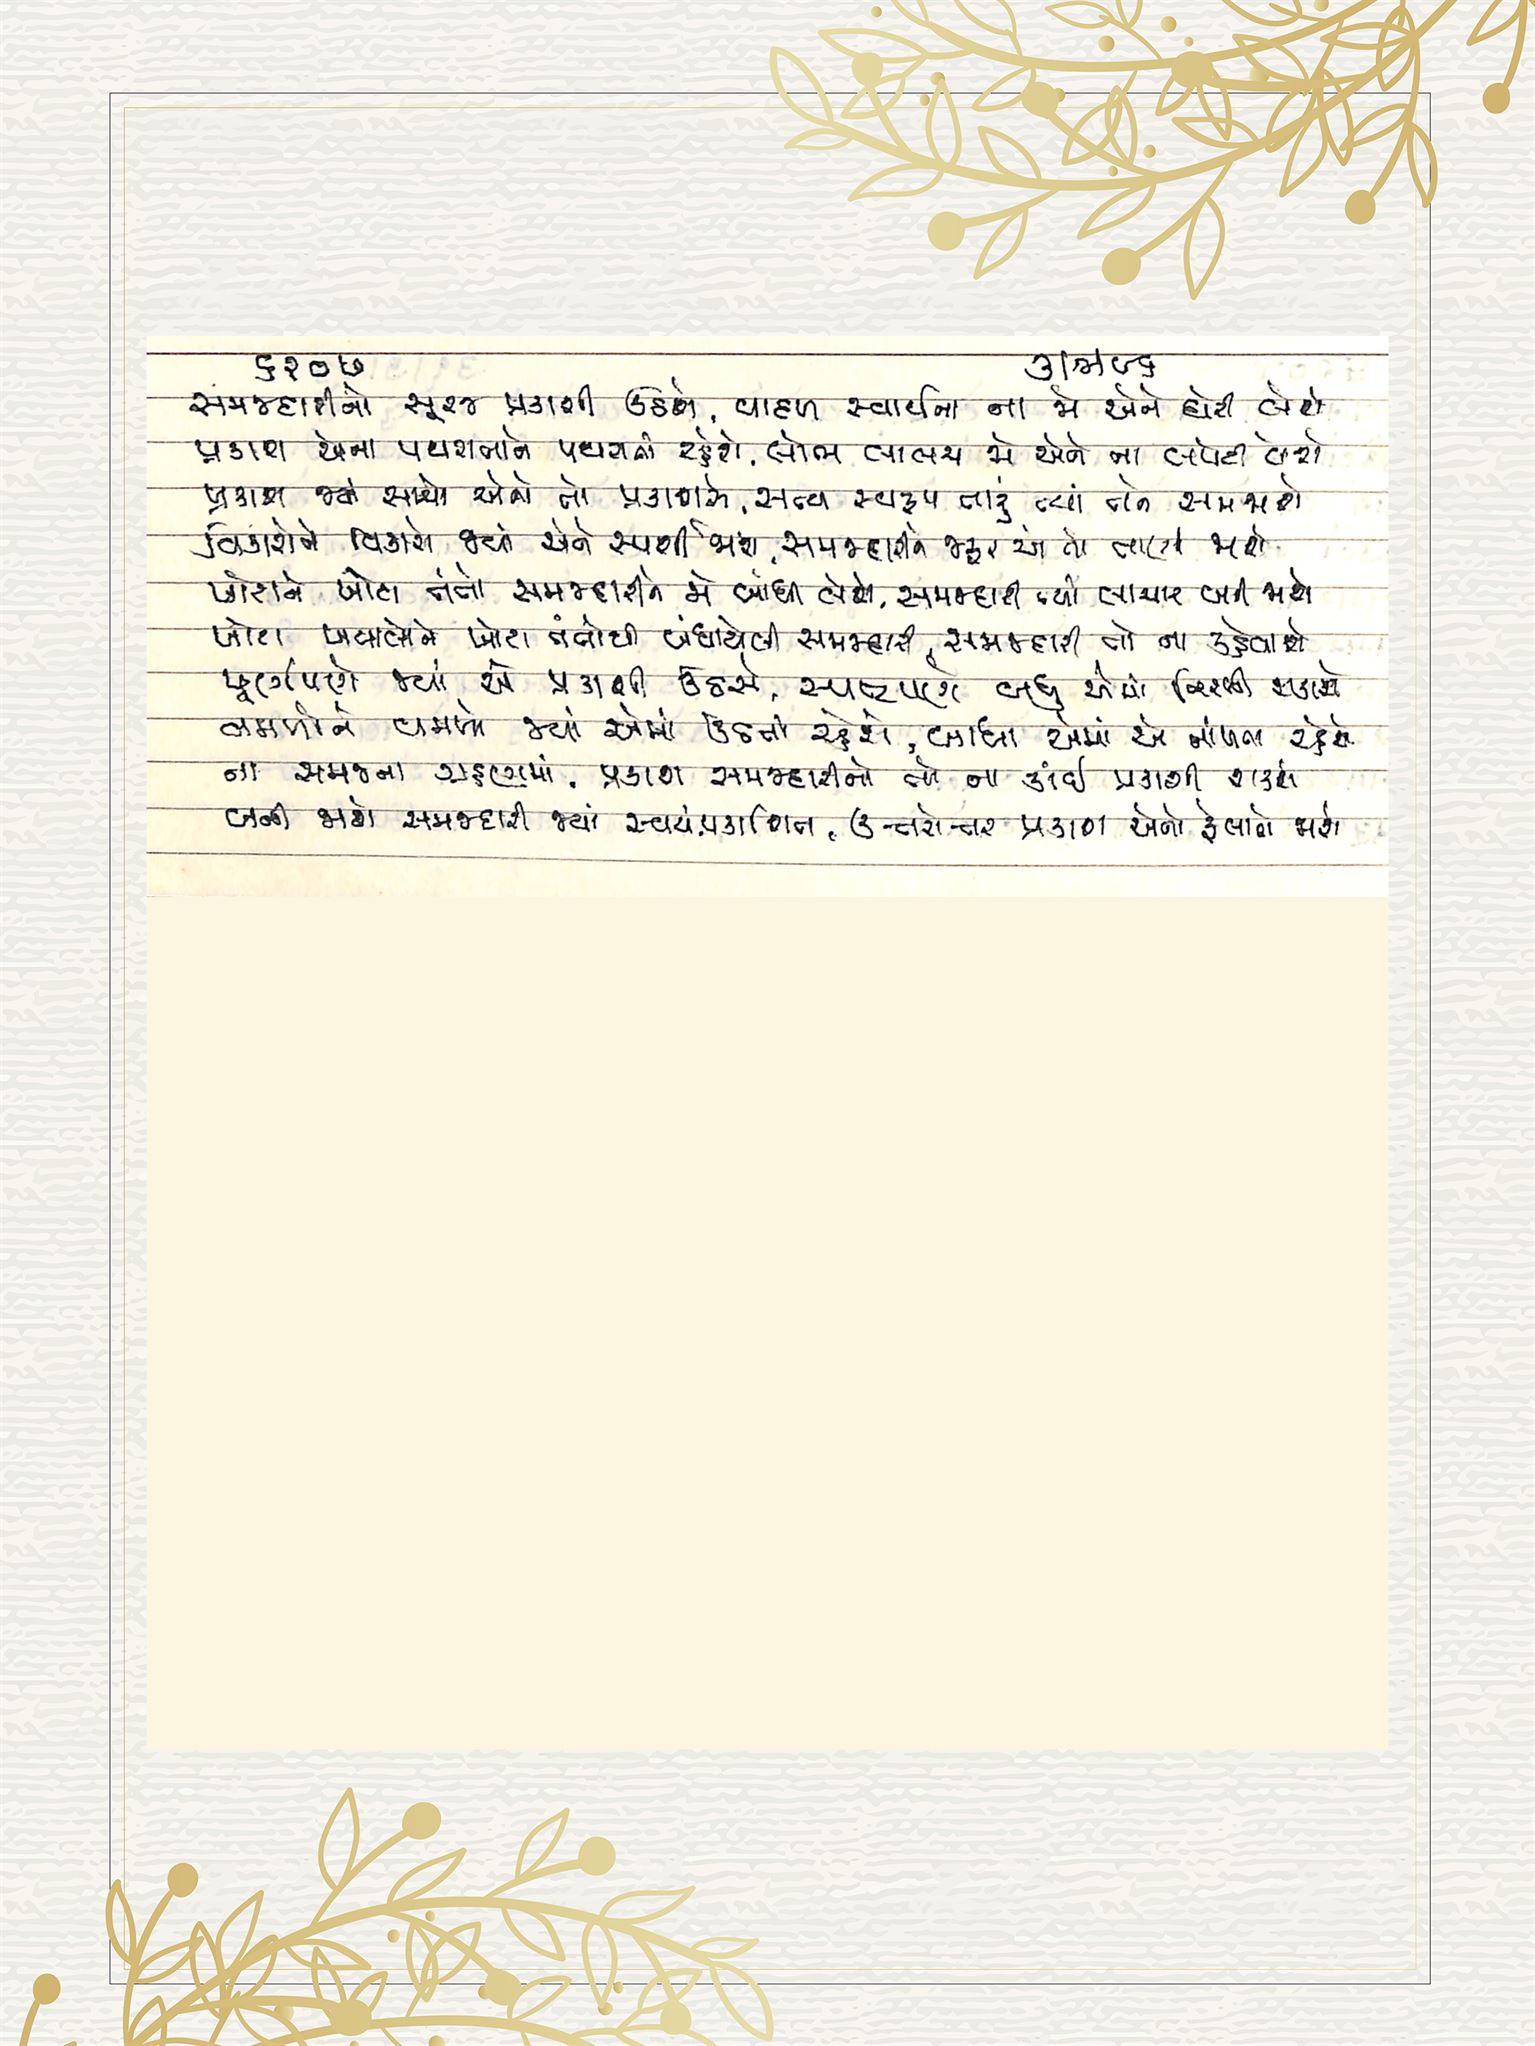 ૬૨૦૭
સમજદારીનો સૂરજ પ્રકાશી ઉઠશે, વાદળ સ્વાર્થના ના જો એને ઘેરી લેશે
પ્રકાશ એના પથરાતાને પથરાતા રહેશે, લોભ લાલચ જો એને ના લપેટી લેશે
પ્રકાશ જ્યાં સાચો એનો તો પ્રકાશશે, સત્ય સ્વરૂપ તારું ત્યાં તને સમજાશે
વિકારોને વિકારો જ્યાં એને સ્પર્શી જાશે, સમજદારીને જરૂર એ તો લાગી જાશે
ખોટાને ખોટા તંતો સમજદારીને જો બાંધી લેશે, સમજદારી ત્યાં લાચાર બની જાશે
ખોટા ખયાલોને ખોટા તંતોથી બંધાયેલી સમજદારી, સમજદારી તો ના કહેવાશે
પૂર્ણપણે જ્યાં એ પ્રકાશી ઉઠશે, સ્પષ્ટપણે બધું એમાં નિરખી શકાશે
વમળોને વમળો જ્યાં એમાં ઉઠતા રહેશે, બાધા એમાં એ નાંખતા રહેશે
ના સમજના ગ્રહણમાં, પ્રકાશ સમજદારીનો તો ના કાંઈ પ્રકાશી શકશે
બની જાશે સમજદારી જ્યાં સ્વયંપ્રકાશિત, ઉત્તરોત્તર પ્રકાશ એનો ફેલાતો જાશે